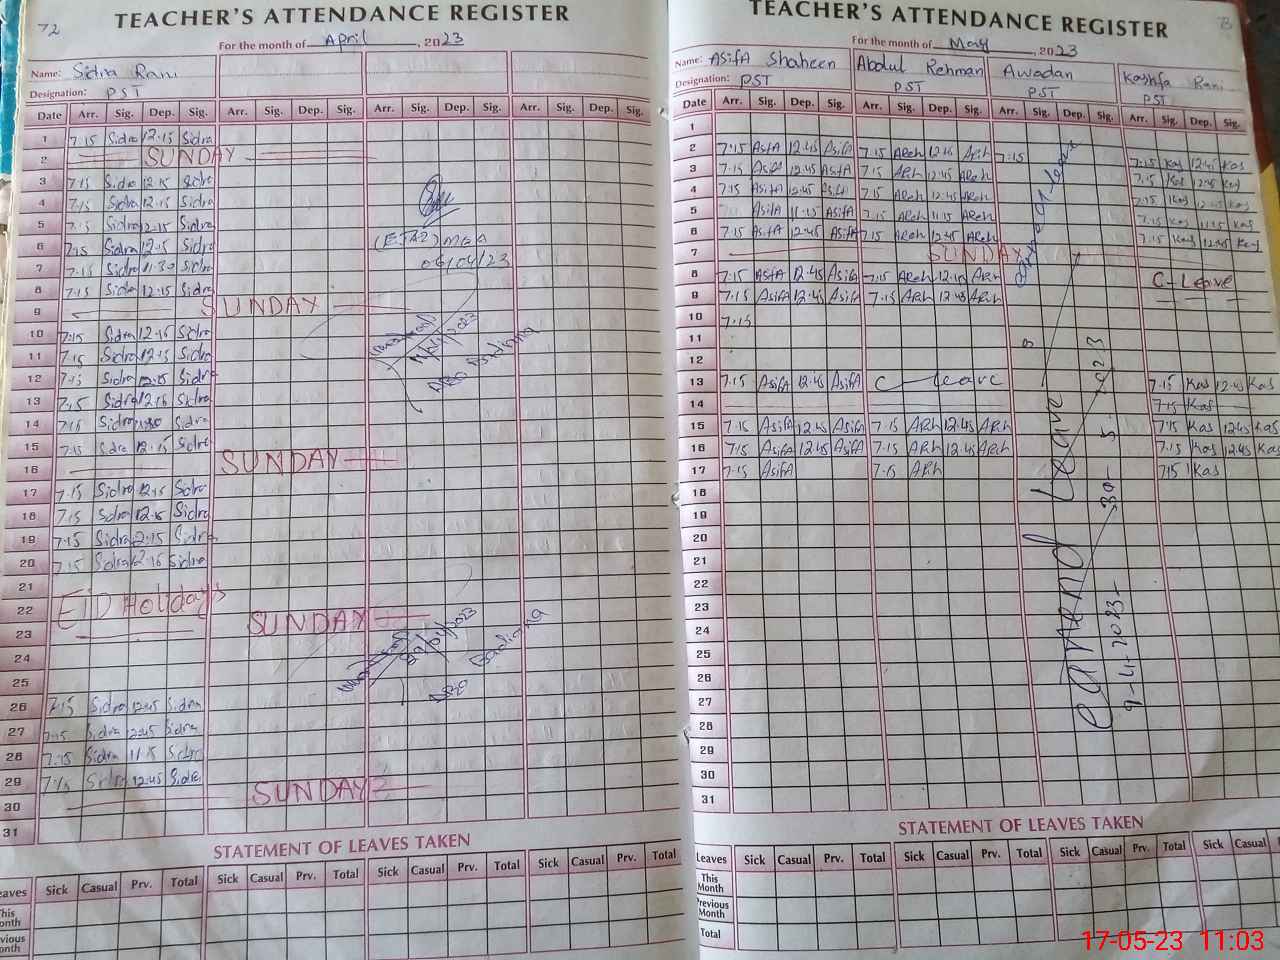 72
TEACHER'S ATTENDANCE REGISTER
For the month of April, 2023
Name: Sidra Rani
Designation: PST
Date Arr. Sig. Dep. Sig. Arr. Sig. Dep. Sig. Arr. Sig. Dep. Sig. Arr. Sig. Dep. Sig.
1 7.15 Sidra 12.15 Sidra
2 SUNDAY
3 7.15 Sidra 12.15 Sidra
4 7.15 Sidra 12.15 Sidra
5 7.15 Sidra 12.15 Sidra
6 7.15 Sidra 12.15 Sidra
7 7.15 Sidra 11.30 Sidra
8 7.15 Sidra 12.15 Sidra
06/04/23
9 SUNDAY
10 7.15 Sidra 12.15 Sidra
11 7.15 Sidra 12.15 Sidra
12 7.15 Sidra 12.15 Sidra
13 7.15 Sidra 12.15 Sidra
14 7.15 Sidra Sidra
15 7.15 Sidra 12.15 Sidra
16 SUNDAY
17 7.15 Sidra 12.15 Sidra
18 7.15 Sidra 12.15 Sidra
19 7.15 Sidra 12.15 Sidra
20 7.15 Sidra 12.15 Sidra
21
22 EID Holidays
23 SUNDAY
24
25
26 7.15 Sidra 12.45 Sidra
27 7.15 Sidra 12.45 Sidra
28 7.15 Sidra 11.15 Sidra
29 7.15 Sidra 12.45 Sidra
30 SUNDAY
31
STATEMENT OF LEAVES TAKEN
Leaves Sick Casual Prv. Total Sick Casual Prv. Total Sick Casual Prv. Total Sick Casual Prv. Total
This Month
Previous Month
TEACHER'S ATTENDANCE REGISTER
For the month of May, 2023
Name: Asifa Shaheen Abdul Rehman Awadan Kashfa Rani
Designation: PST PST PST PST
Date Arr. Sig. Dep. Sig. Arr. Sig. Dep. Sig. Arr. Sig. Dep. Sig. Arr. Sig. Dep. Sig.
1
2 7.15 Asifa 12.45 Asifa 7.15 AReh 12.45 ARh 7:15 7.15 Kas 12.45 Kas
3 7.15 Asifa 12.45 Asifa 7.15 ARh 12.45 AReh 7.15 Kas 12.45 Kas
4 7.15 Asifa 12.45 Asifa 7.15 AReh 12.45 AReh 7.15 Kas 12.45 Kas
5 Asifa 11.15 Asifa 7.15 AReh 11.15 AReh 7.15 Kas 11.15 Kas
6 7.15 Asifa 12.45 Asifa 7.15 AReh 12.45 AReh 7.15 Kas 12.45 Kas
7 SUNDAY
8 7.15 Asifa 12.45 Asifa 7.15 AReh 12.45 ARh C-Leave
9 7.15 Asifa 12.45 Asifa 7.15 ARh 12.45 ARh
10 7.15
11
12
13 7.15 Asifa 12.45 Asifa C-leave 7.15 Kas 12.45 Kas
14 7.15 Kas
15 7.15 Asifa 12.45 Asifa 7.15 ARh 12.45 ARh 7.15 Kas 12.45 Kas
16 7.15 Asifa 12.45 Asifa 7.15 ARh 12.45 ARh 7.15 Kas 12.45 Kas
17 7.15 Asifa 7.15 ARh 7.15 Kas
18
19
20
21
22
23
24
25
26
27
28
29
30
31
earnend leave
STATEMENT OF LEAVES TAKEN
Leaves Sick Casual Prv. Total Sick Casual Prv. Total Sick Casual Prv. Total Sick Casual
This Month
Previous Month
Total
17-05-23 11:03